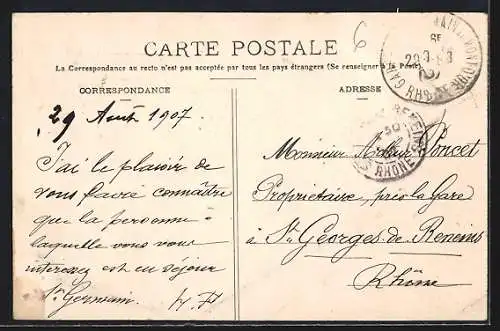 6
CARTE POSTALE
La Correspondance au recto n'est pas acceptée par tous les pays étrangers (Se renseigner à la Poste)
CORRESPONDANCE
ADRESSE
29 Août 1907.
J'ai le plaisir de
vous faire connaître
que la personne
laquelle vous vous
interessez est en séjour
St Germain. H. P
Monsieur Poncet
Propriétaire, près la Gare
à St Georges de Reneins
Rhône
RHÔNE